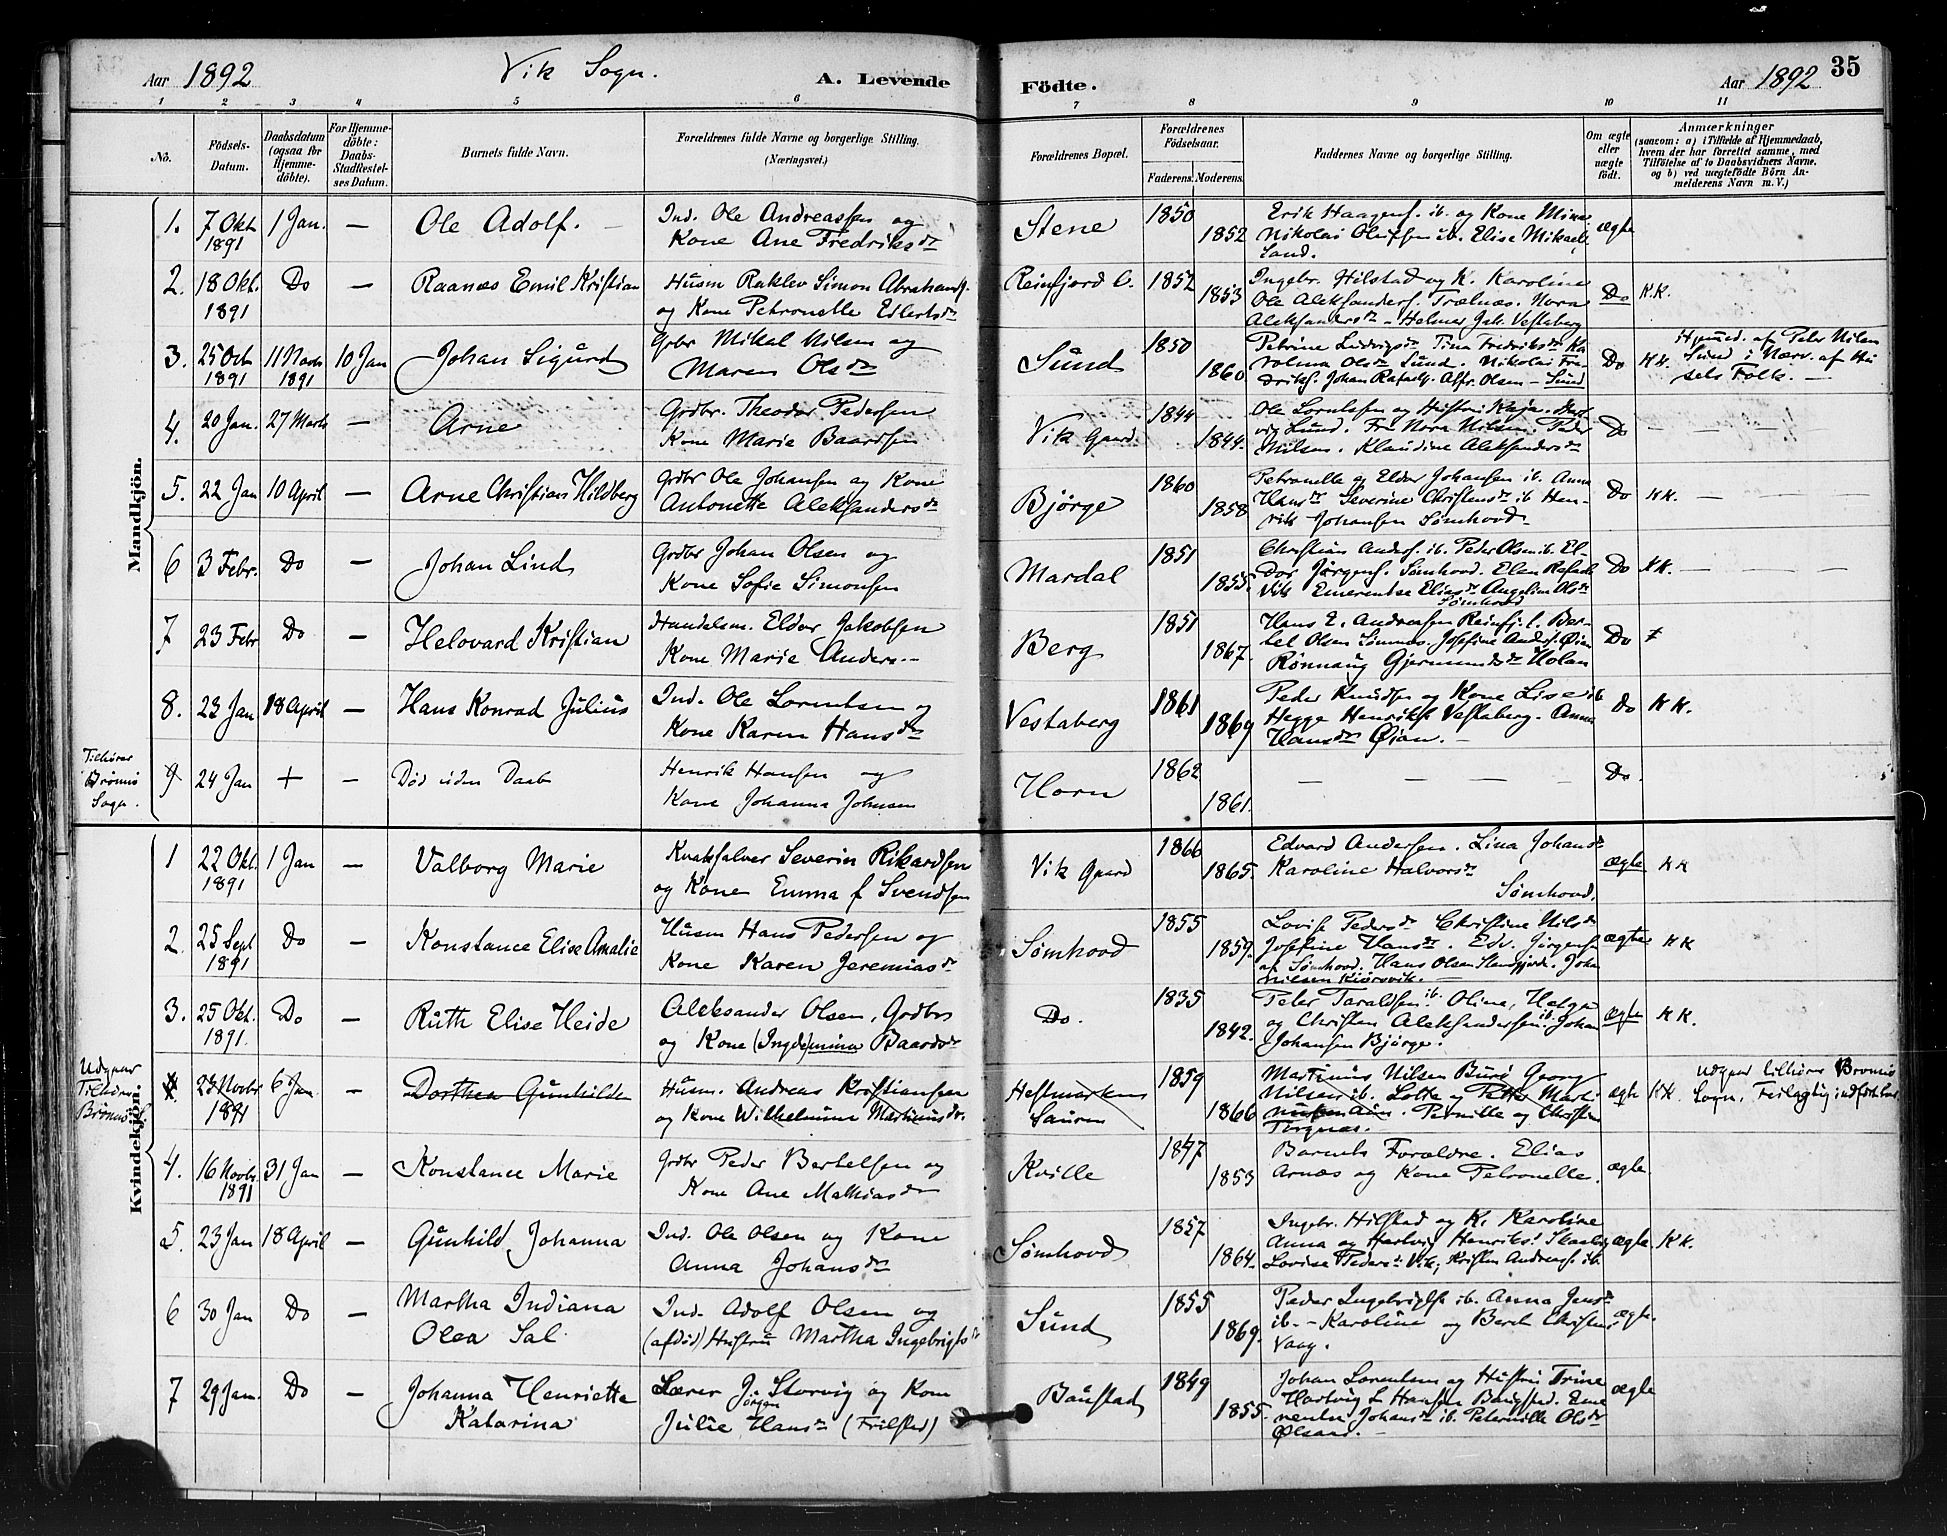 Aar 1892 Vik Sogn. A. Levende Födte. Aar 1892 35
1 2 3 4 5 6 7 8 9 10 11
No. Födsels-Datum. Daabsdatum (ogsaa for Hjemme-döbte). For Hjemme-döbte: Daabs-Stadfæstel-ses Datum. Barnets fulde Navn. Forældrenes fulde Navne og borgerlige Stilling. (Næringsvei.) Forældrenes Bopæl. Forældrenes Födselsaar. Faderens. Moderens. Faddernes Navne og borgerlige Stilling. Om ægte eller uægte födt. Anmærkninger (saasom: a) i Tilfælde af Hjemmedaab, hvem der har forrettet samme, med Tilföielse af to Daabsvidners Navne, og b) ved uægtefödte Börn An-melderens Navn m. V.)
Mandkjön.
1. 7 Okt 1891 1 Jan. — Ole Adolf. — Ind. Ole Andreassen og
Kone Ane Fredriksdr Stene 1850 1852 Erik Haagens. ib. og Kone Mina
Nikolai Olufsen ib. Elise Mikaels
Sand. ægte
2. 18 Okt. 1891 Do — Raanæs Emil Kristian Husm Raklev Simon Abrahams.
og Kone Petronelle Edlertsdr Reinfjord 1852 1853 Ingebr. Hilstad og K. Karoline
Ole Aleksanders. Trælnæs. Nora
Aleksandersdr – Helmer Jak. Vestaberg Do K.K.
3. 25 Octr 1891 11 Novbr 1891 10 Jan Johan Sigurd Gbr Mikal Nilsen og
Maren Olsdr Sund 1850 1860 Petrine Ludvigsdr Tina Fredriksdr Ka
rolina Olsdr Sund. Nikolai Fre
driks. Johan Rafaels. Alfr. Olsen – Sund Do K K. Hjemmed. af Peter Nilsen
Sund i Nærv. af Hu
sets Folk. —
4. 20 Jan. 27 Marts — Arne Grdbr. Theodor Pedersen
Kone Marie Baardsen Vik Gaard 1844 1844. Ole Lorntsen og Hustru Kaja. Hart
vig Lund. Fru Nora Nilsen. Peder
Nilsen. Klaudine Aleksandersdr Do — — —
5. 22 Jan 10 April — Arne Christian Hildberg Grdbr Ole Johansen og Kone
Antonette Aleksandersdr Bjørge 1860 1858 Petronelle og Eldor Johansen ib. Anna
Hansdr Severine Christensdr ib Hen-
rik Johansen Sømhovd Do K K. — —
6 3 Febr. Do — Johan Lind Grdbr Johan Olsen og
Kone Sofie Simonsen Mardal 1851 1855. Christian Anders. ib. Peder Olsen ib. El-
dor Jørgens. Sømhovd. Elen Rafaels
Vik Emerentse Eliasdr Angeline Olsdr
Sømhovd Do K K. — — —
7 23 Febr Do — Helovard Kristian Handelsm. Eldor Jakobsen
Kone Marie Anders.- Berg 1851 1867. Hans E. Andreassen Reinfj. Ber-
tel Olsen Simnes. Josefine Anders. Øian
Rönnaug Gjermundsdr Holan Do
8. 23 Jan 18 April — Hans Konrad Julius Ind. Ole Lorentsen og
Kone Karen Hansdr Vestaberg 1861 1869 Peder Knudsen og Kone Lise ib
Hegge Henriks. Vestaberg. Anna
Hansdr Øian. — Do K K.
Tilhører Brønnø Sogn. 9 24 Jan + — Død uden Daab Henrik Hansen og
Kone Johanna Johnsen Horn 1862 1861. — — — — Do.
Kvindekjön.
1 22 Okt. 1891 1 Jan — Valborg Marie Kvaksalver Severin Rikardsen
og Kone Emma f Svendsen Vik Gaard 1866 1865. Edvard Andersen. Lina Johansdr
Karoline Halvorsdr
Sømhovd. ægte K K
2. 25 Sept 1891 Do — Konstance Elise Amalie Husm Hans Pedersen og
Kone Karen Jeremiasdr Sømhovd 1855 1859. Lovise Pedersdr Christine Nilsdr
Josefine Hansdr. Edv. Jørgensen
af Sømhovd. Hans Olsen Stensfjord. Johan
Nilsen Kjørsvik. ægte K K
3. 25 Okt. 1891. Do — Ruth Elise Heide Aleksander Olsen, Grdbr
og Kone (Inge)mina Baardsdr Do. 1835 1842. Peter Taraldsen ib. Oline, Helga
og Christen Aleksandersen ib. Johan
Johansen Bjørge. ægte K K.
Udgaar Tilhører Brønnø S. 23 Novbr 1891 6 Jan — Dorthea Gunhilde Husm. Andreas Kristiansen
og Kone Wilhelmine Martinusdr. Hestmarken
Sauren 1859 1866 Martinus Nilsen Burø Georg
Nilsen ib. Lotte og Petter Marti
nusen Aun. Pernille og Christen
Torgnæs. ægte K K. Udgaar tilhører Brønnø
Sogn. Feilagtig indført her
4. 16 Novbr 1891 31 Jan — Konstance Marie Grdbr Peder Bertelsen og
Kone Ane Mathiasdr Kville 1847 1853 Barnets Forældre. Elias
Arnæs og Kone Petronelle. ægte
5. 23 Jan 18 April — Gunhild Johanna Ind. Ole Olsen og Kone
Anna Johansdr Sømhovd 1857 1864. Ingebr. Hilstad og K. Karoline
Anna og Hartvig Henriks.
Lovise Peders. Vik, Kristen Andreas. ib. ægte K K.
6 30 Jan Do — Martha Indiana
Olea Sal Ind. Adolf Olsen og
(afdød) Hustru Martha Ingebrigtsdr Sund 1855 1869. Peder Ingebrigts. ib. Anna Jensdr
ib. – Karoline og Bernt Christens.
Vaag. ægte.
7 29 Jan. Do — Johanna Henriette
Katarina Lærer J. Storvig og Kone
Jörgen
Julie Hansdr (Frilsted) Baustad 1849 1855. Johan Lorentsen og Hustru Trine
Hartvig L Hansen Baugstad. Eme
rentse Johansdr ib. Peternille Olsdr
Ølsard. — ægte